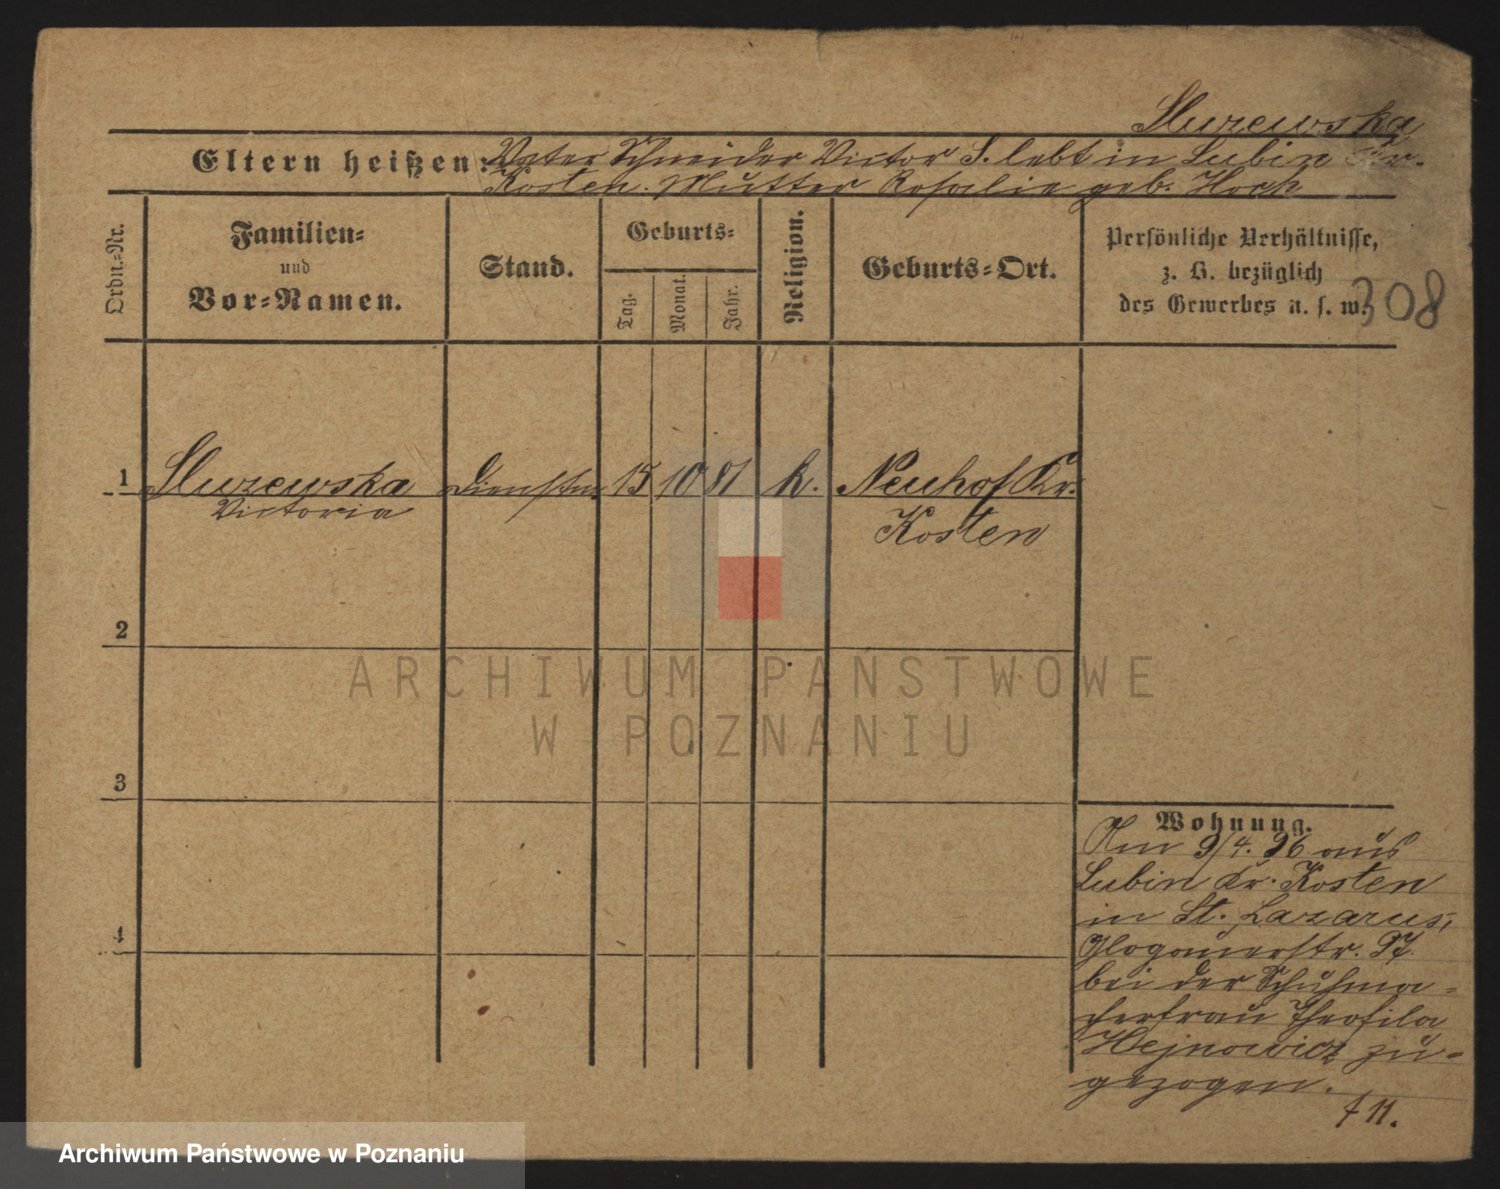 Sluzewska
Eltern heißen: Vater Schneider Victor S. lebt in Lubin Kr.
Kosten. Mutter Rosalie geb. Hoch
Ordn.-Nr.
Familien-
und
Vor-Namen.
Stand.
Geburts-
Tag.
Monat.
Jahr.
Religion.
Geburts-Ort.
Persönliche Verhältnisse,
z. B. bezüglich
des Gewerbes u. s. w.
308
1 Sluzewska 15 10 81 k. Neuhof Kr.
Victoria
Kosten
2
3
4
Wohnung.
Am 9/4. 96 aus
Lubin Kr. Kosten
in St. Lazarus,
Glogauerstr. 97
bei der Schuhma-
cherfrau Theofila
Hejnowicz zu-
gezogen.
ARCHIWUM PAŃSTWOWE
W POZNANIU
Archiwum Państwowe w Poznaniu